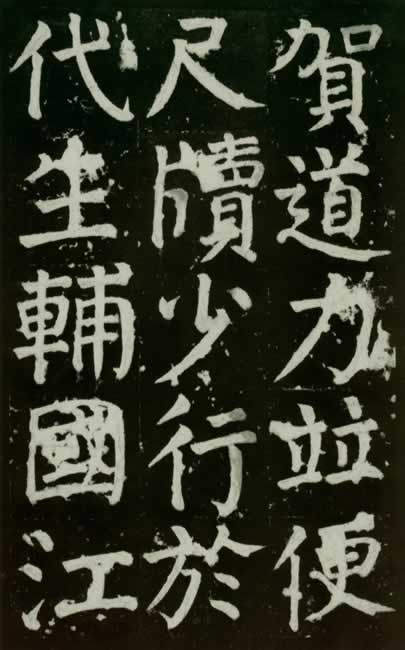 賀道力並便
尺牘少行於
代生輔國江